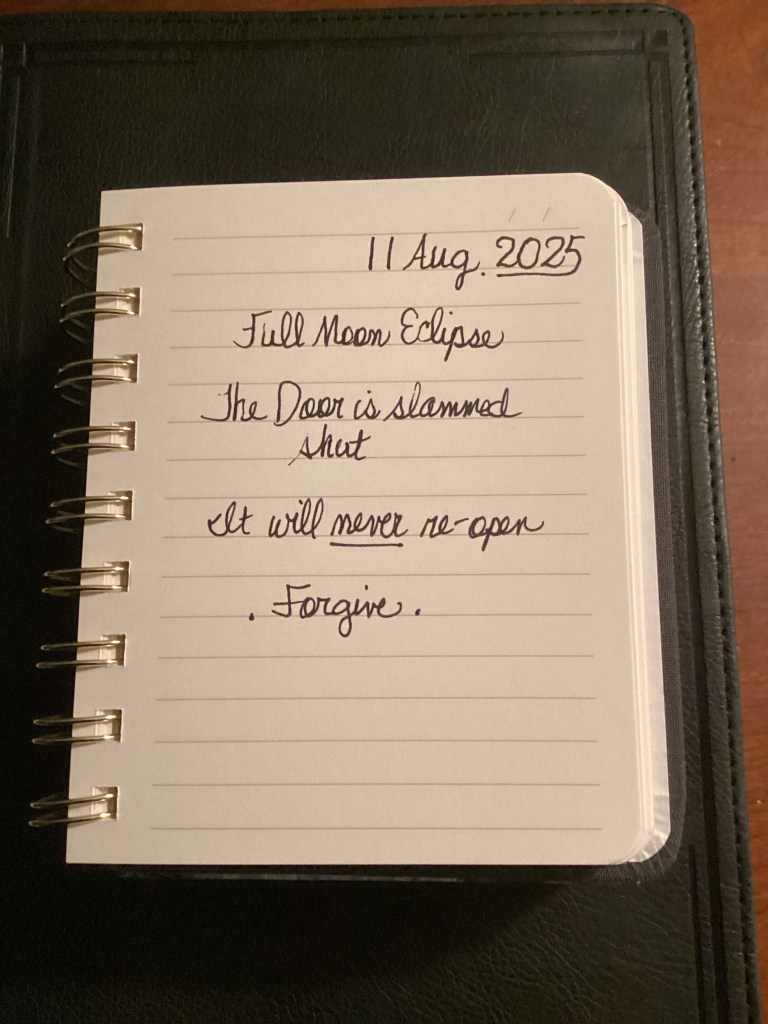 11 Aug. 2025
Full Moon Eclipse
The Door is slammed
shut
It will never re-open
. Forgive .